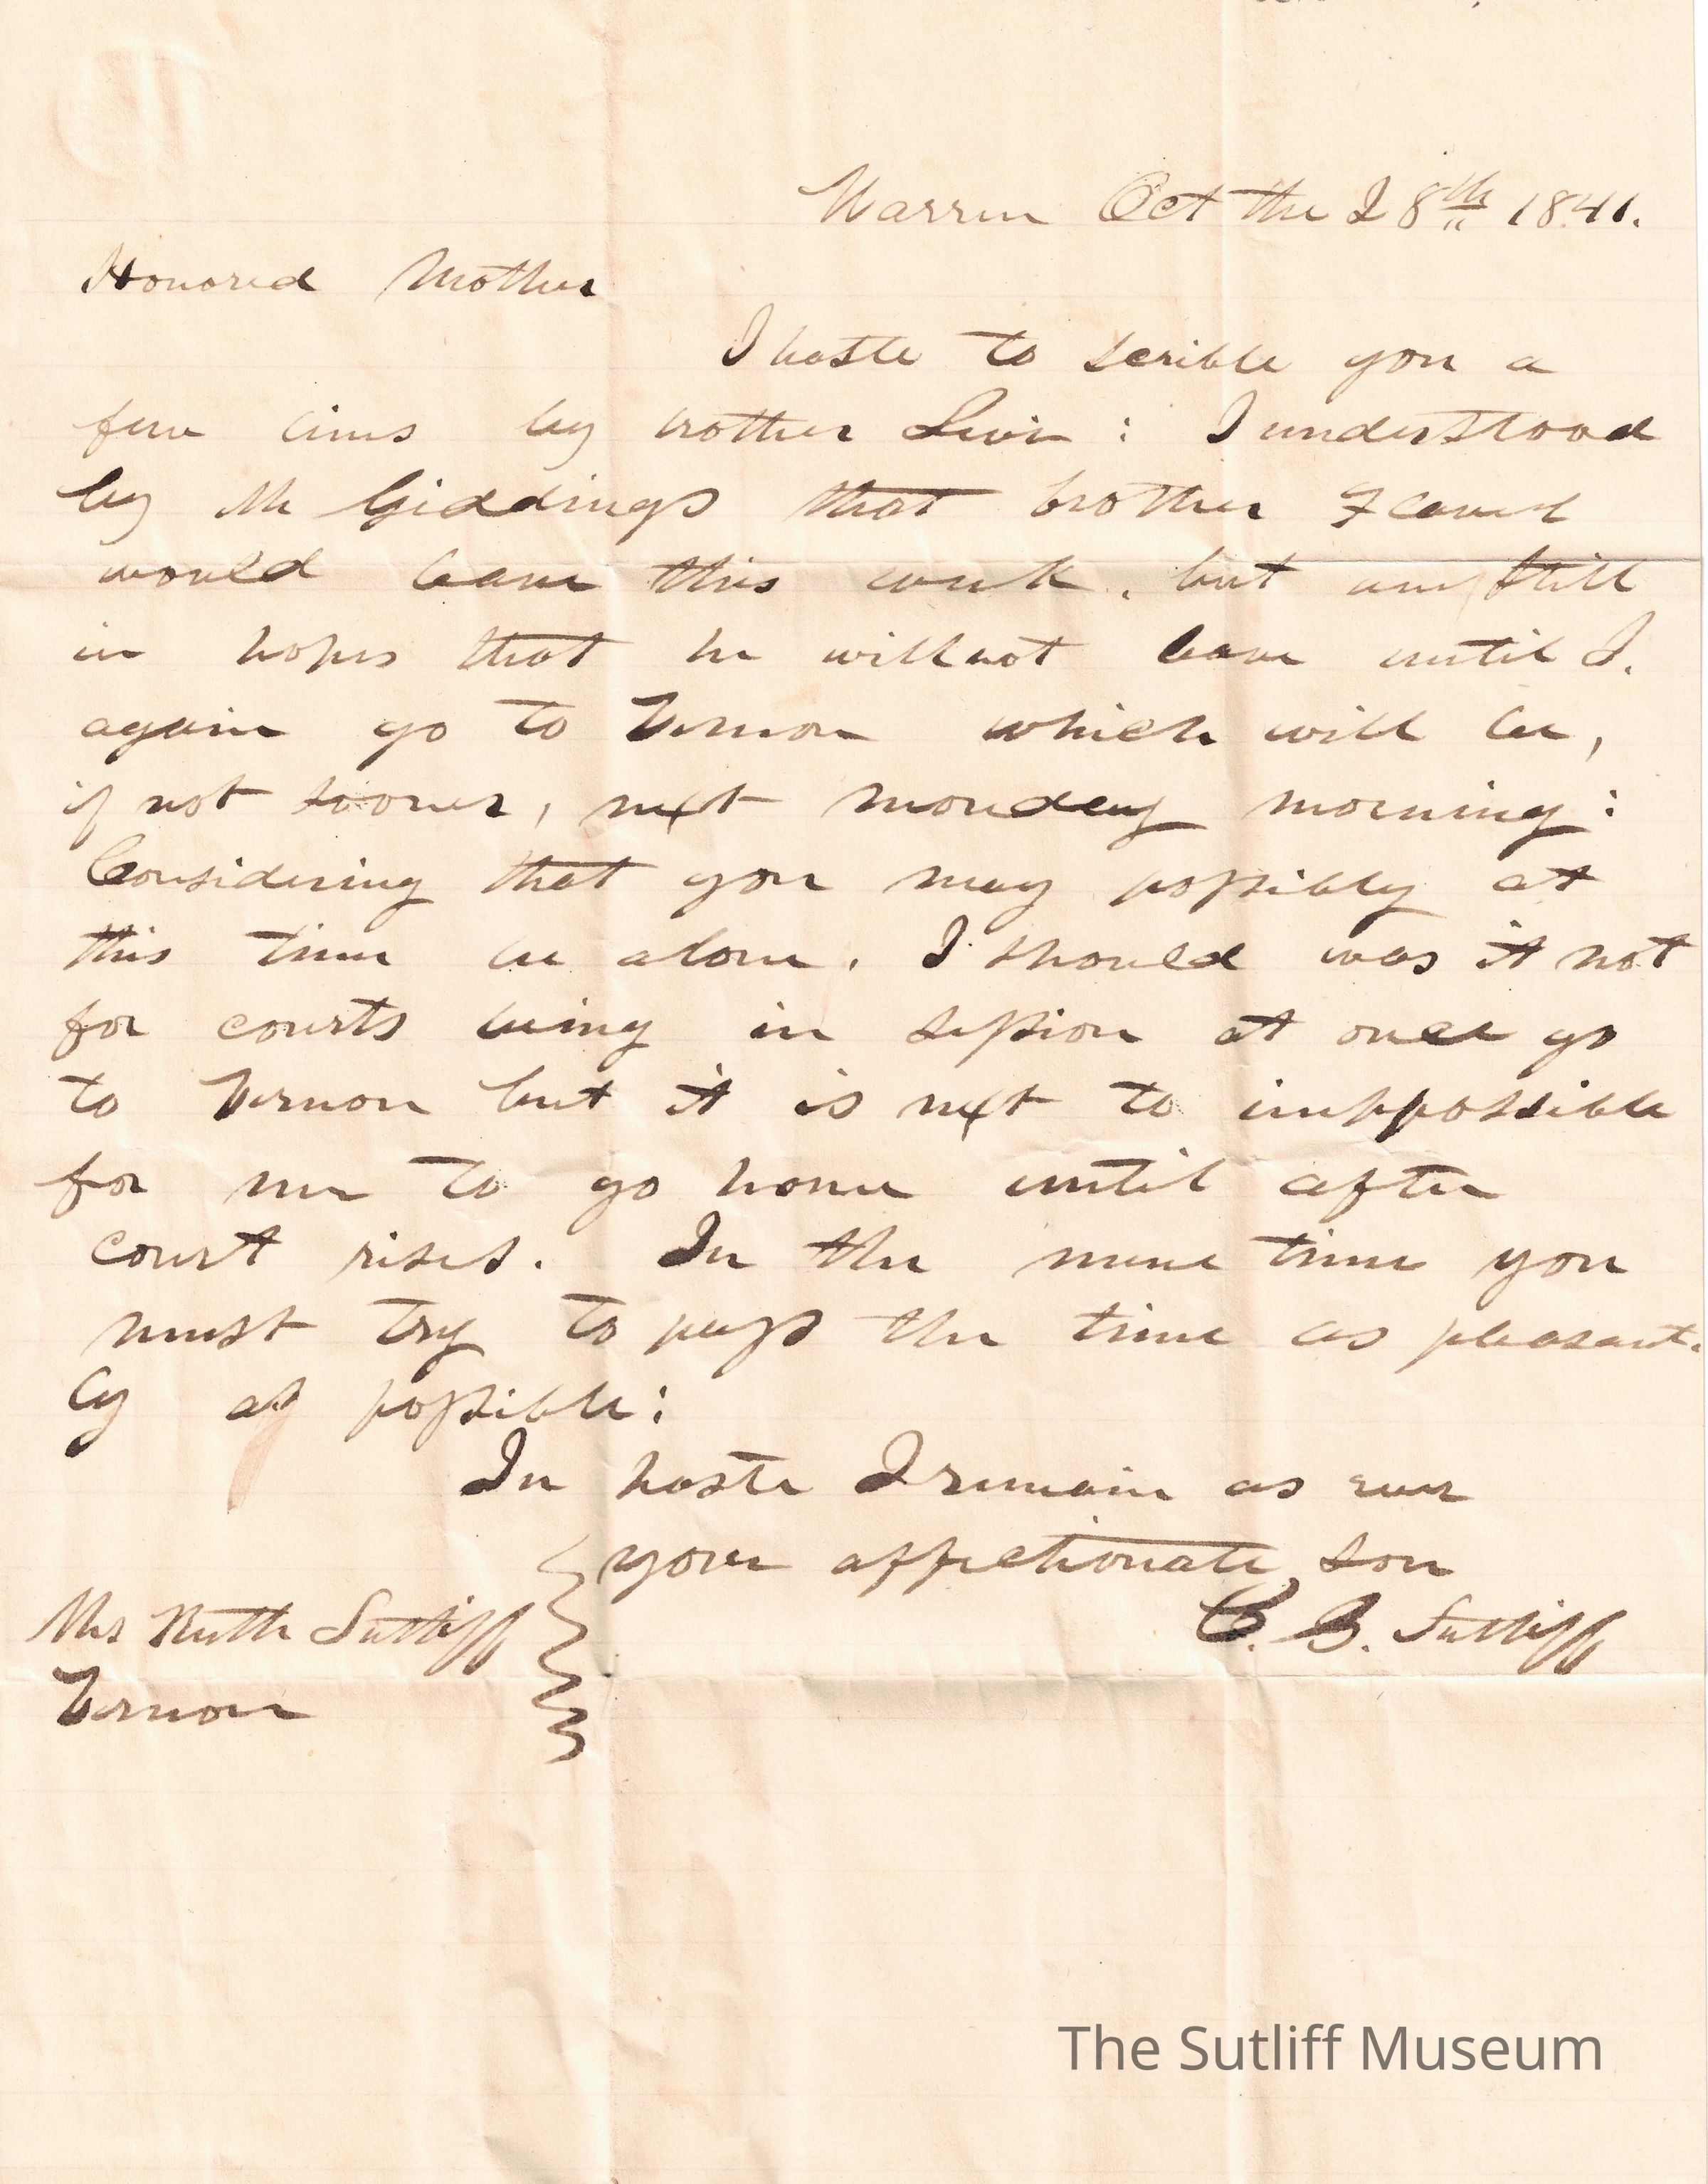 Warren Oct the 28th 1841.
Honored Mother
I haste to scrible you a
few lines by brother Levi : I understood
by Mr Giddings that brother Flavel
would leave this week . but am still
in hopes that he will not leave until I.
again go to Vernon which will be ,
if not sooner , next monday morning :
Considering that you may possibly at
this time be alone . I should was it not
for courts being in session at once go
to Vernon but it is next to imppossible
for me to go home until after
court rises . In the mene time you
must try to pass the time as pleasant-
ly as possible :
In haste I remain as ever
your affectionate son
C. B. Sutliff
Mrs Ruth Sutliff
Vernon
The Sutliff Museum